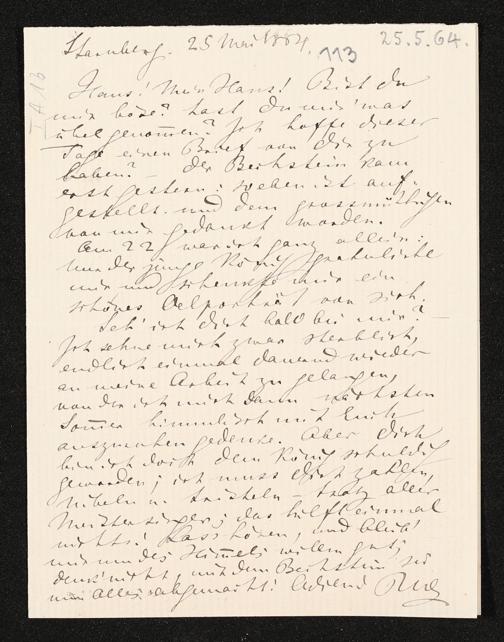 Starnberg. 25 Mai 1864.
113
25.5.64.
I A 13
Hans! Mein Hans! Bist du
mir böse? hast du mir was
übel genommen? Ich hoffe dieser
Tage einen Brief von dir zu
haben? — Der Bechstein kam
erst gestern: soeben ist auf-
gestellt und dem grossmüthigen
von mir gedankt worden.
Am 22 war ich ganz allein:
nur der junge König gratulirte
mir und schenkte mir ein
schönes Oelporträt von sich.
Seh' ich dich bald bei mir? —
Ich sehne mich zwar sterblich,
endlich einmal dauernd wieder
an meine Arbeit zu gelangen,
von der ich mich dann nächsten
Sommer himmlisch mit Euch
auszuruhen gedenke. Aber dich
bin ich doch dem König schuldig
geworden; ich muss dich zahlen,
Nibeln u. Tristeln — trotz aller
Meistersinger; das hilft einmal
nichts! Lass hören, und bleib'
mir um des Himmels willen gut;
denk' nicht, mit dem Bechstein sei
nun alles abgemacht! Adieu!